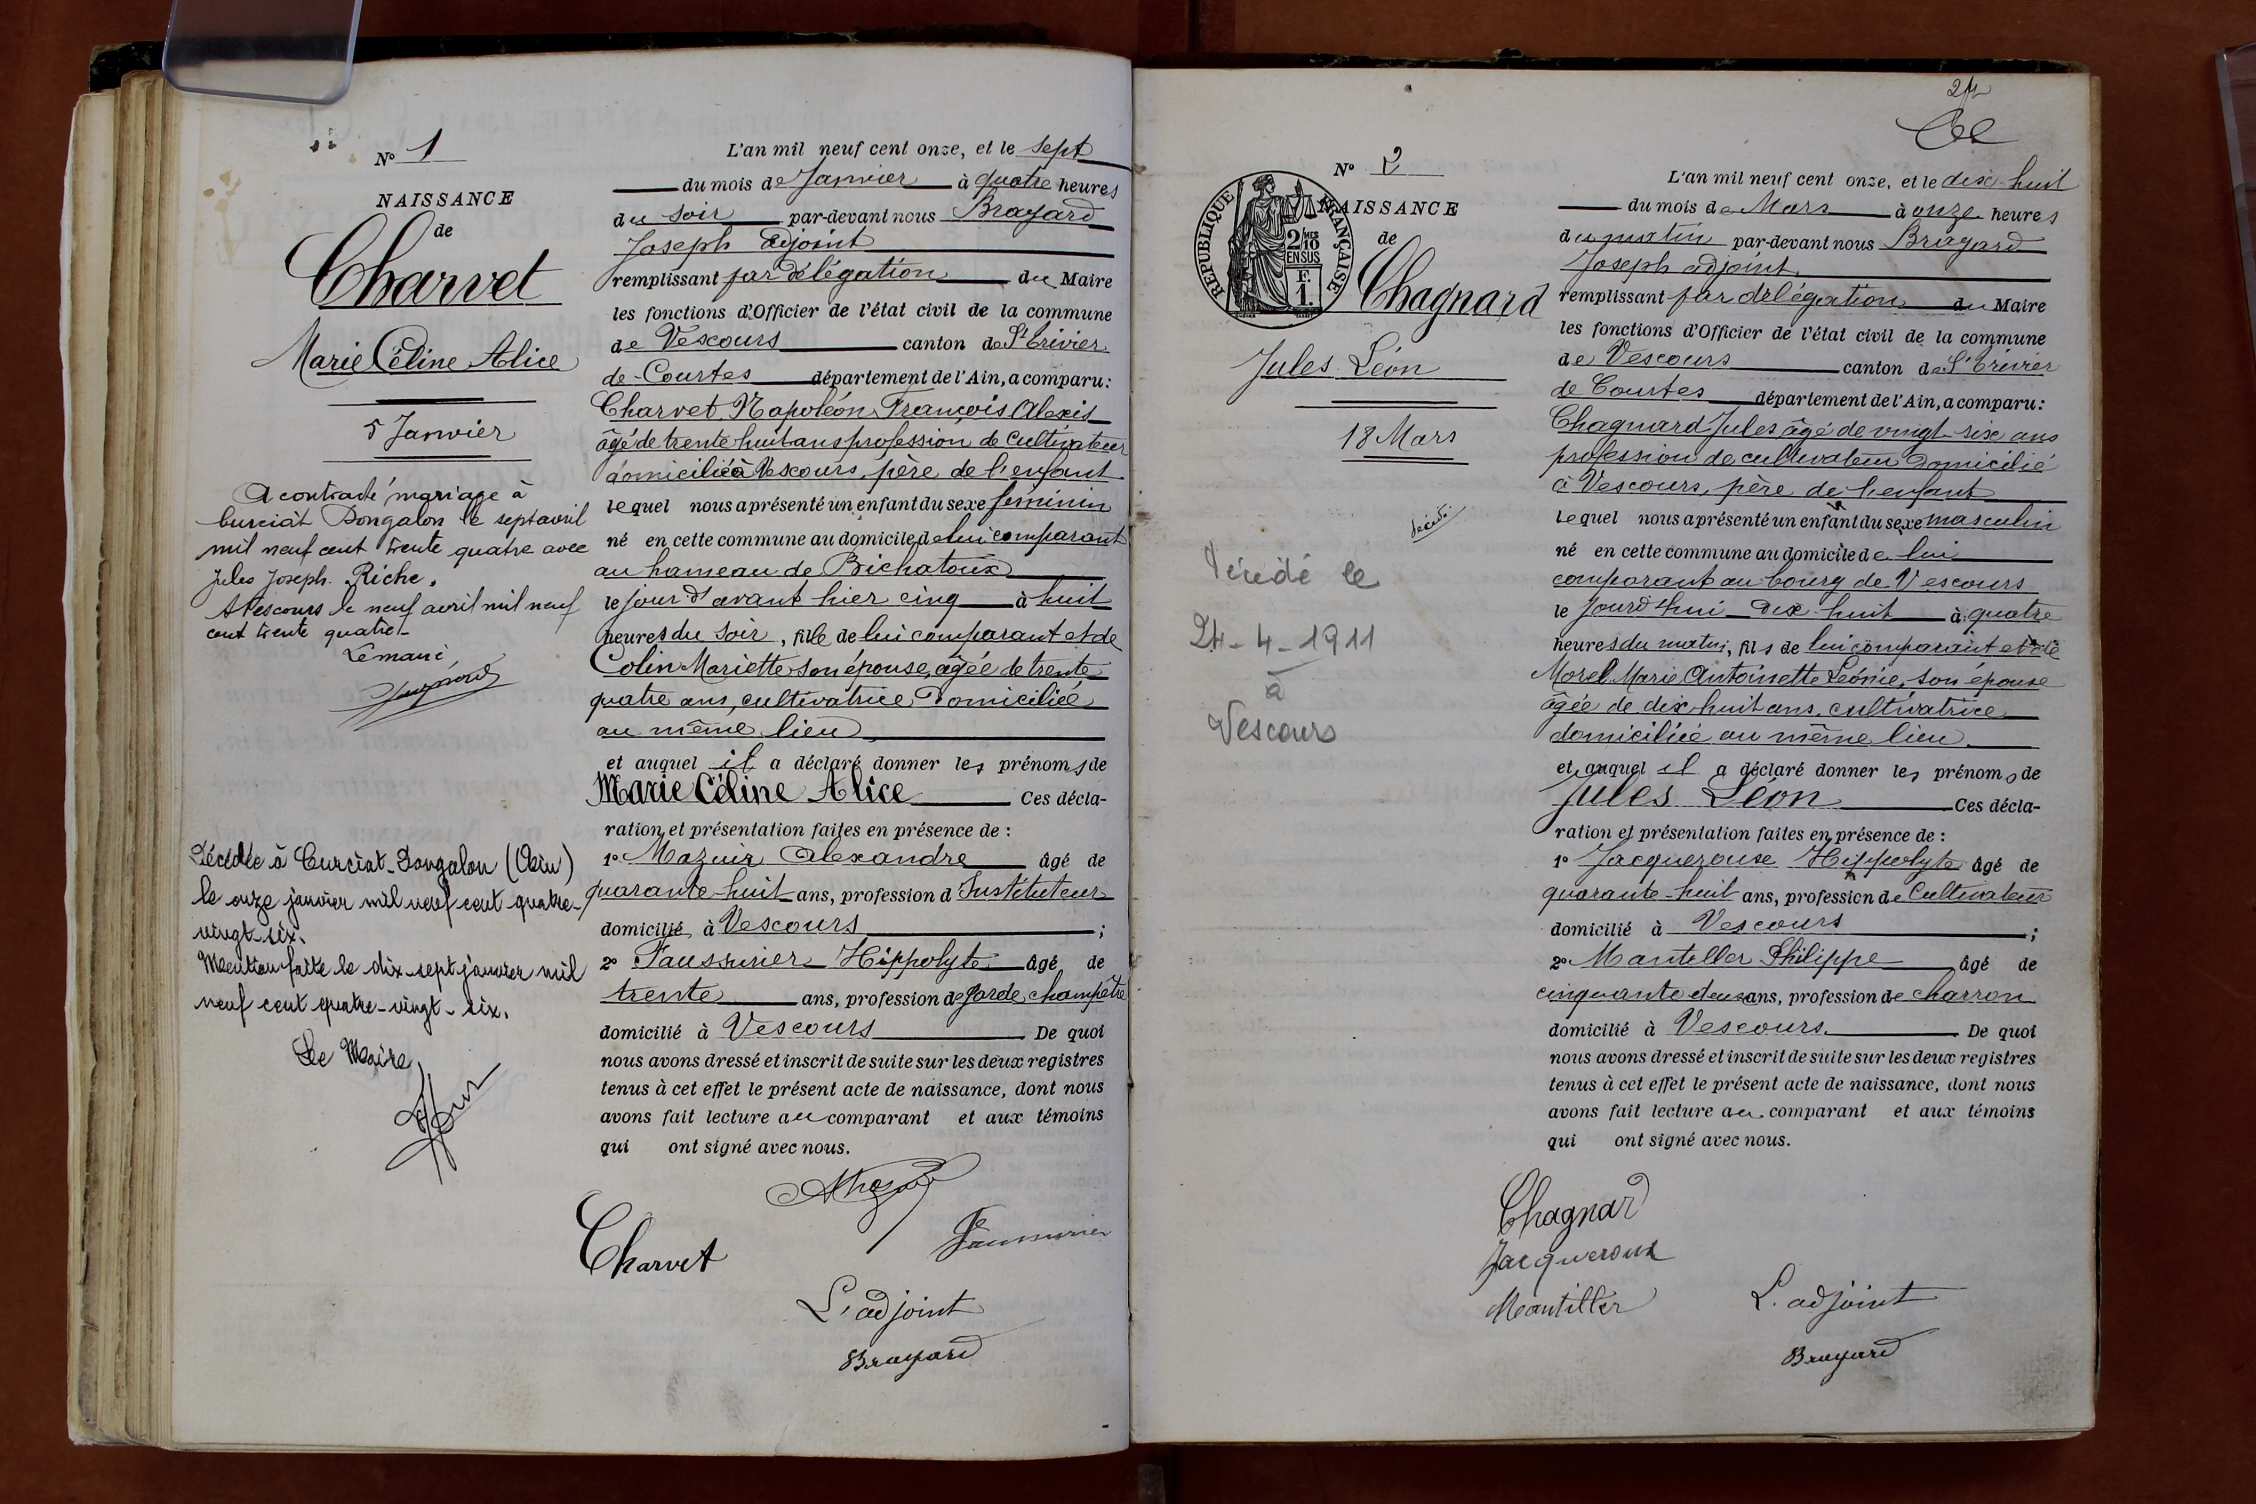 N° 1
NAISSANCE
de
Charvet
Marie Céline Alice
5 Janvier
A contracté mariage à
Curciat Dongalon le sept avril
mil neuf cent trente quatre avec
Jules Joseph Riche.
A Vescours le neuf avril mil neuf
cent trente quatre.
Le maire
Décédée à Curciat-Dongalon (Ain)
le onze janvier mil neuf cent quatre-
vingt-six.
Mention faite le dix-sept janvier mil
neuf cent quatre-vingt-six.
Le Maire
L'an mil neuf cent onze, et le sept
du mois de Janvier à quatre heures
du soir par-devant nous Brayard
Joseph adjoint
remplissant par délégation du Maire
les fonctions d'Officier de l'état civil de la commune
de Vescours canton de St Trivier
de Courtes département de l'Ain, a comparu:
Charvet Napoléon François Alexis
âgé de trente huit ans profession de cultivateur
domicilié à Vescours, père de l'enfant
lequel nous a présenté un enfant du sexe féminin
né en cette commune au domicile de lui comparant
au hameau de Bichatoux
le jour d'avant hier cinq à huit
heures du soir, fille de lui comparant et de
Colin Mariette son épouse, âgée de trente
quatre ans, cultivatrice Domiciliée
au même lieu
et auquel il a déclaré donner les prénoms de
Marie Céline Alice Ces décla-
ration et présentation faites en présence de :
1° Mazuir Alexandre âgé de
quarante-huit ans, profession d'Instituteur
domicilié à Vescours ;
2° Faussurier Hippolyte âgé de
trente ans, profession de garde champêtre
domicilié à Vescours De quoi
nous avons dressé et inscrit de suite sur les deux registres
tenus à cet effet le présent acte de naissance, dont nous
avons fait lecture au comparant et aux témoins
qui ont signé avec nous.
Charvet
Faussurier
L'adjoint
Brayard
24
N° 2
NAISSANCE
de
REPUBLIQUE FRANÇAISE
2/10 MES
EN SUS
F.
1.
Chagnard
Jules Léon
18 Mars
décédé
Décédé le
24-4-1911
à
Vescours
L'an mil neuf cent onze, et le dix huit
du mois de Mars à onze heures
du matin par-devant nous Brayard
Joseph adjoint
remplissant par délégation du Maire
les fonctions d'Officier de l'état civil de la commune
de Vescours canton de St Trivier
de Courtes département de l'Ain, a comparu:
Chagnard Jules, âgé de vingt-six ans
profession de cultivateur Domicilié
à Vescours, père de l'enfant
lequel nous a présenté un enfant du sexe masculin
né en cette commune au domicile de lui
comparant au bourg de Vescours
le jourd'hui dix-huit à quatre
heures du matin, fils de lui comparant et de
Morel Marie Antoinette Léonie, son épouse
âgée de dix huit ans, cultivatrice
domiciliée au même lieu
et auquel il a déclaré donner les prénoms de
Jules Léon Ces décla-
ration et présentation faites en présence de :
1° Jacqueroux Hippolyte âgé de
quarante-huit ans, profession de Cultivateur
domicilié à Vescours ;
2° Mantiller Philippe âgé de
cinquante deux ans, profession de charron
domicilié à Vescours De quoi
nous avons dressé et inscrit de suite sur les deux registres
tenus à cet effet le présent acte de naissance, dont nous
avons fait lecture au comparant et aux témoins
qui ont signé avec nous.
Chagnard
Jacqueroux
Mantiller
L'adjoint
Brayard